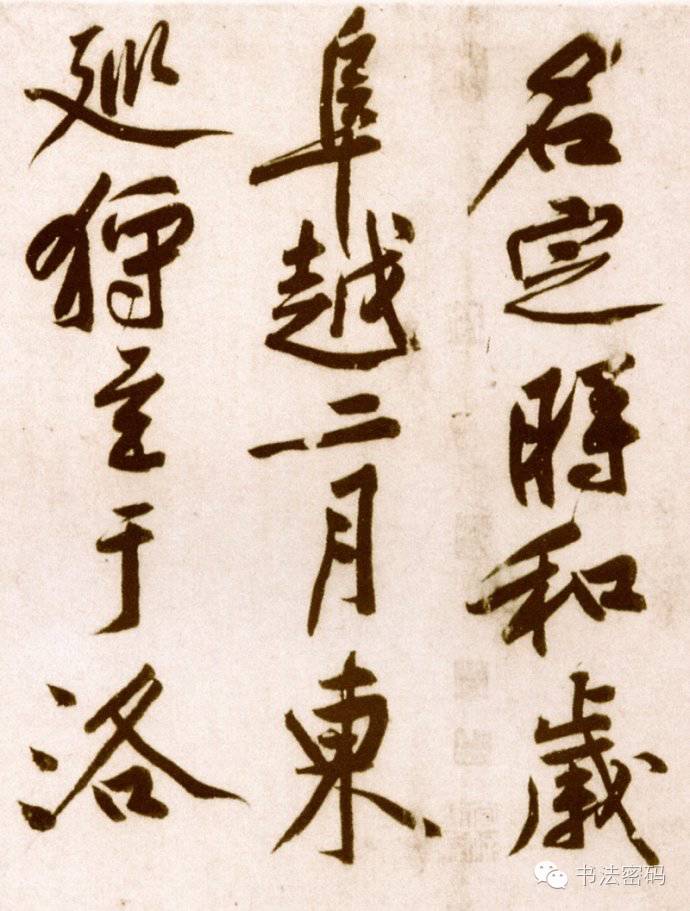 名定時和歲
阜越二月東
巡狩至于洛
书法密码